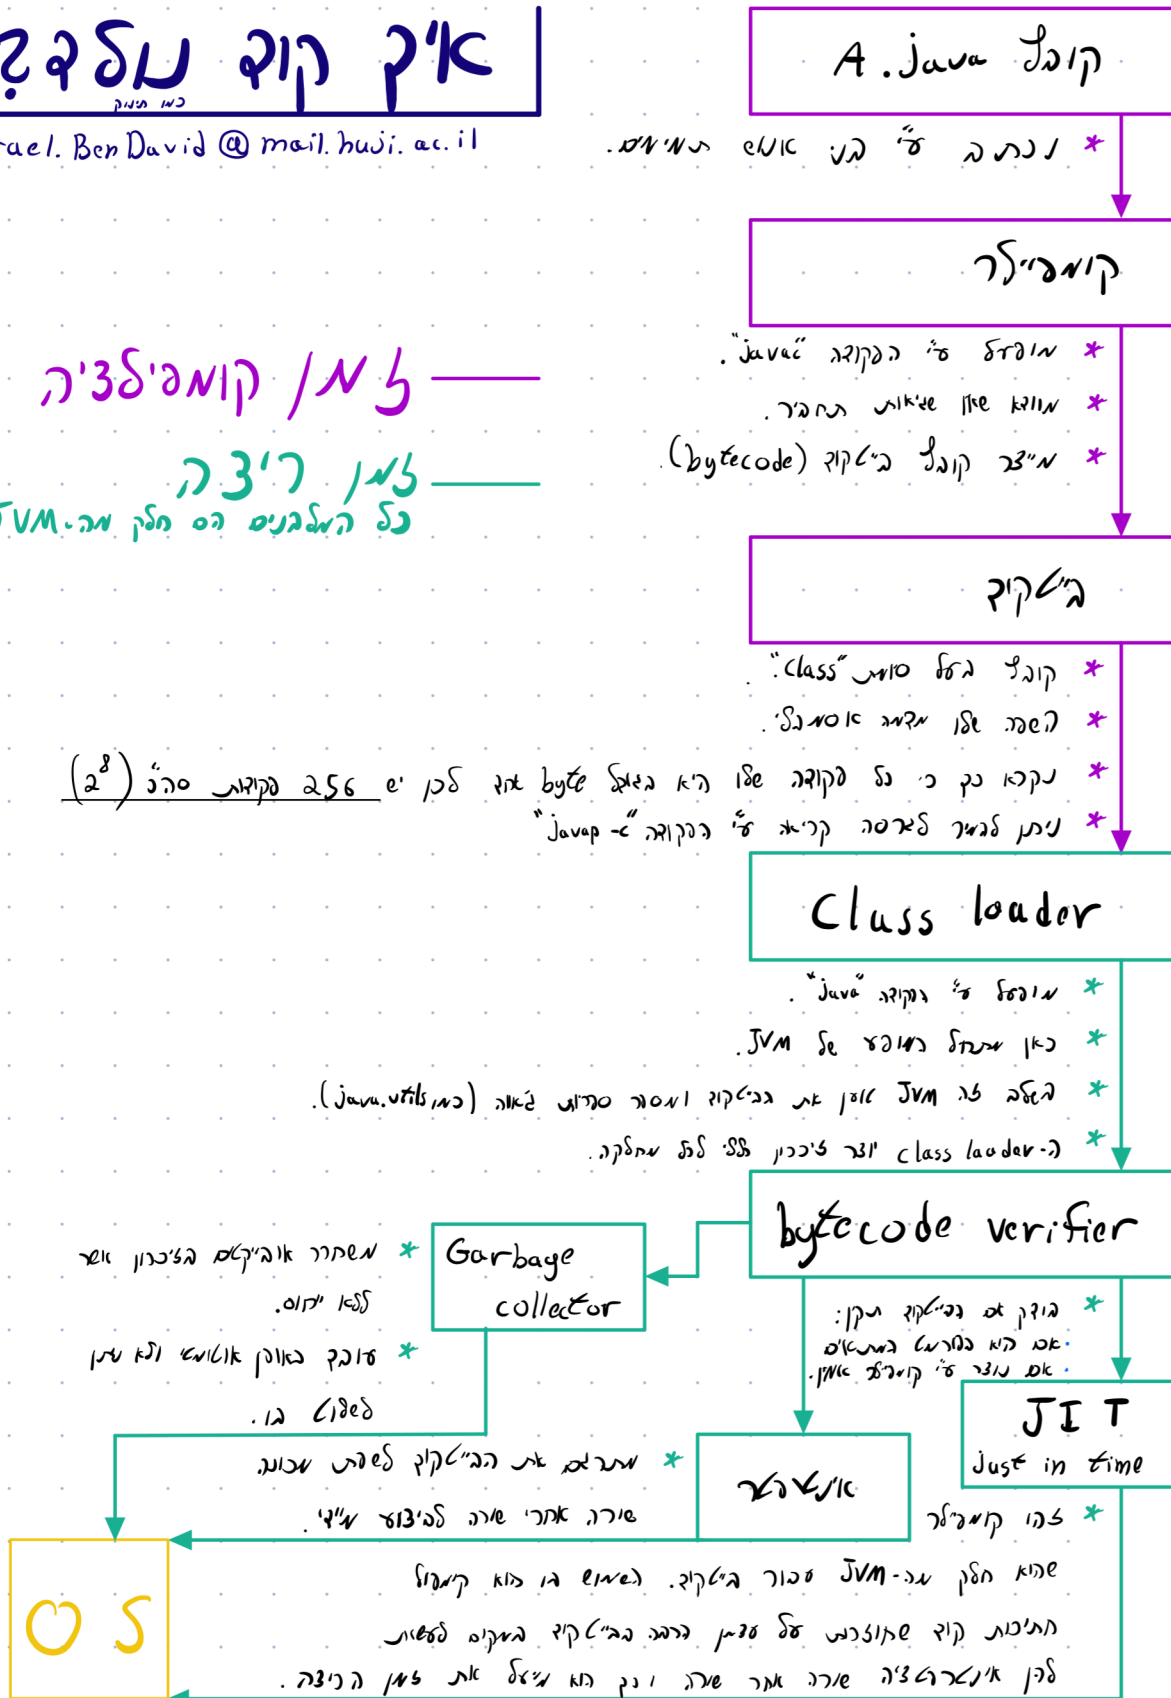 איך קוד נולד?
כמו תינוק
rael.BenDavid@mail.huji.ac.il
קובץ A.java
* נכתב ע"י בני אנוש תמימים.
קומפיילר
* מופעל ע"י הפקודה "javac".
* מוודא שאין שגיאות תחביר.
* מייצר קובץ בייטקוד (bytecode).
זמן קומפילציה
זמן ריצה
כל המלבנים הם חלק מה-JVM
בייטקוד
* קובץ בעל סיומת "class.".
* השפה שלו מדמה אסמבלי.
* נקרא כך כי כל פקודה שלו היא בגודל byte אחד לכן יש 256 פקודות סה"כ (2^8)
* ניתן להמיר לגרסה קריאה ע"י הפקודה "javap -c"
Class loader
* מופעל ע"י הפקודה "java".
* כאן מתחיל המופע של JVM.
* בשלב זה JVM טוען את הבייטקוד ומספר ספריות ג'אווה (כמו java.utils).
* ה-class loader יוצר זיכרון כללי לכל מחלקה.
bytecode verifier
* בודק אם הבייטקוד תקין:
· אם הוא בפורמט המתאים
· אם נוצר ע"י קומפיילר אמין.
Garbage
collector
* משחרר אובייקטים בזיכרון אשר
ללא ייחוס.
* עובד באופן אוטומטי ולא ניתן
לשלוט בו.
JIT
just in time
אינטרפטר
* מתרגם את הבייטקוד לשפת מכונה
שורה אחרי שורה לביצוע מיידי.
* זהו קומפיילר
שהוא חלק מה-JVM עבור בייטקוד. השימוש בו הוא קימפול
חתיכות קוד שחוזרות על עצמן הרבה בבייטקוד במקום לעשות
להן אינטרפטציה שורה אחר שורה וכך הוא מייעל את זמן הריצה.
OS